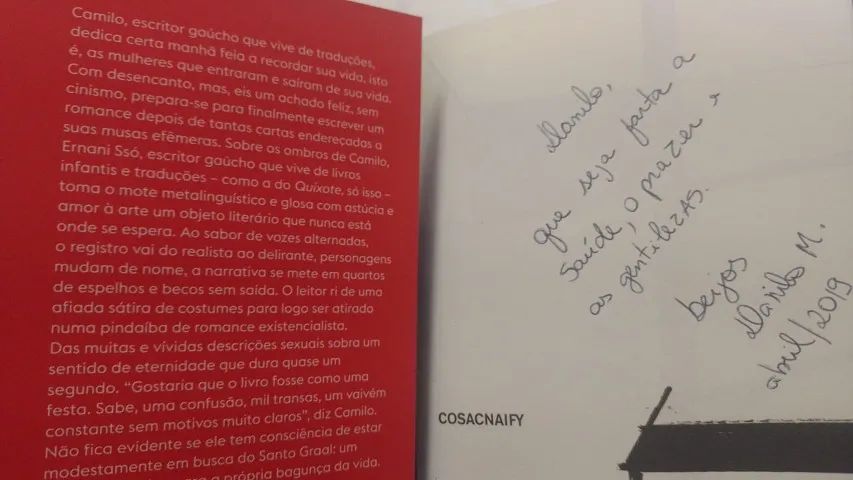 Camilo, escritor gaúcho que vive de traduções,
dedica certa manhã feia a recordar sua vida, isto
é, as mulheres que entraram e saíram de sua vida.
Com desencanto, mas, eis um achado feliz, sem
cinismo, prepara-se para finalmente escrever um
romance depois de tantas cartas endereçadas a
suas musas efêmeras. Sobre os ombros de Camilo,
Ernani Ssó, escritor gaúcho que vive de livros
infantis e traduções – como a do Quixote, só isso –
toma o mote metalinguístico e glosa com astúcia e
amor à arte um objeto literário que nunca está
onde se espera. Ao sabor de vozes alternadas,
o registro vai do realista ao delirante, personagens
mudam de nome, a narrativa se mete em quartos
de espelhos e becos sem saída. O leitor ri de uma
afiada sátira de costumes para logo ser atirado
numa pindaíba de romance existencialista.
Das muitas e vívidas descrições sexuais sobra um
sentido de eternidade que dura quase um
segundo. “Gostaria que o livro fosse como uma
festa. Sabe, uma confusão, mil transas, um vaivém
constante sem motivos muito claros”, diz Camilo.
Não fica evidente se ele tem consciência de estar
modestamente em busca do Santo Graal: um
a própria bagunça da vida.
Danilo,
que seja farta a
saúde, o prazer e
as gentilezas.
beijos
Danilo M.
abril/2019
COSACNAIFY